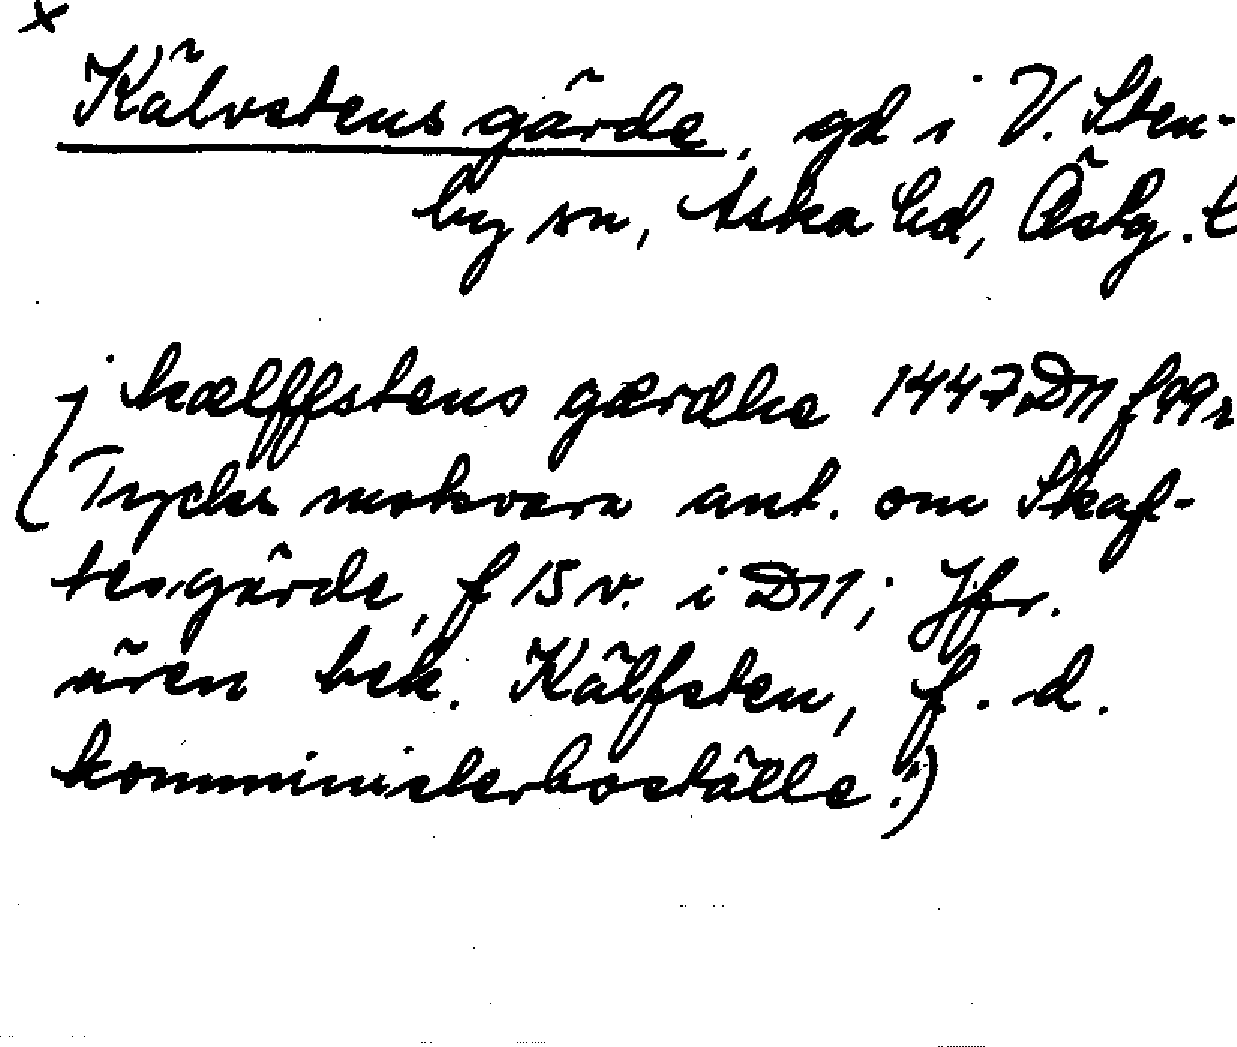 x
Kälvstens gärde, gd i V. Sten-
by sn, Aska hd, Östg. t
j kælffstens gærdhe 1447 DN f 99r
(Tycks motsvara ant. om Skaf-
tesgärde, f 15 v. i DN; Jfr.
även bek. Kälfsten, f. d.
komministerboställe.)